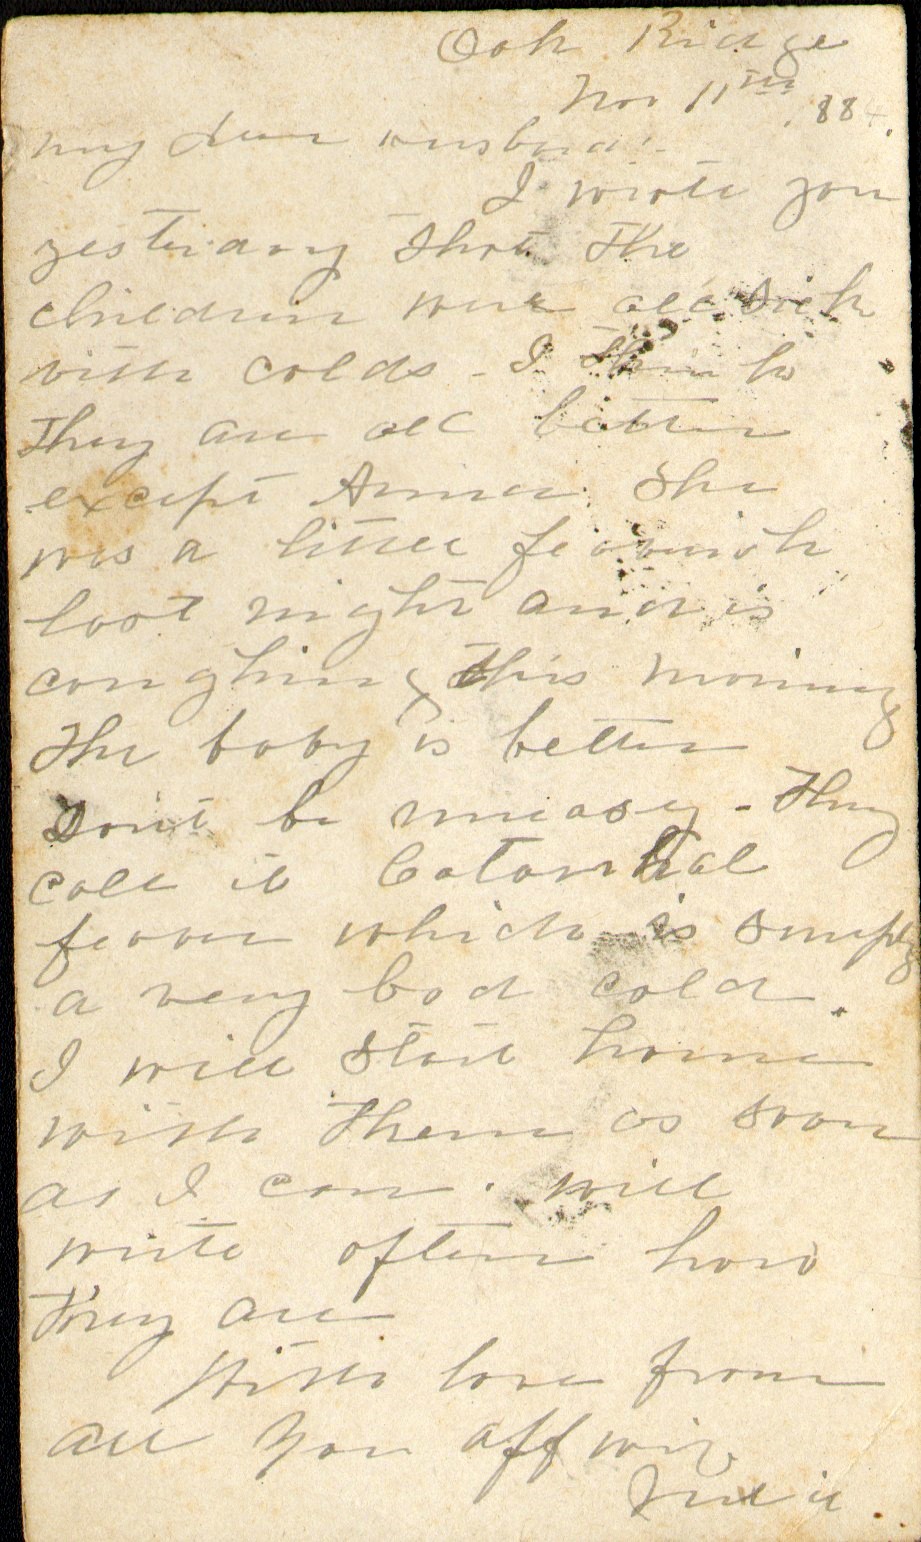 Oak Ridge
Nov 11th, 1884.
My dear husband:-
I wrote you
yesterday that the
children were all sick
with colds - I think
they are all better
except Anna. She
was a little feaverish
last night and is
coughing this morning
The baby is better
Don't be uneasy - They
call it Catarrhal
feaver which is simply
a very bad cold.
I will start home
with them as soon
as I can. will
write often how
they are
With love from
all Your aff wife